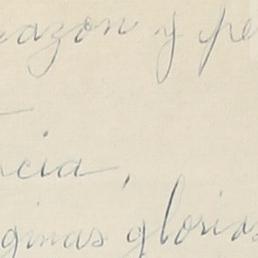 razon y pe
cia,
ginas glorias